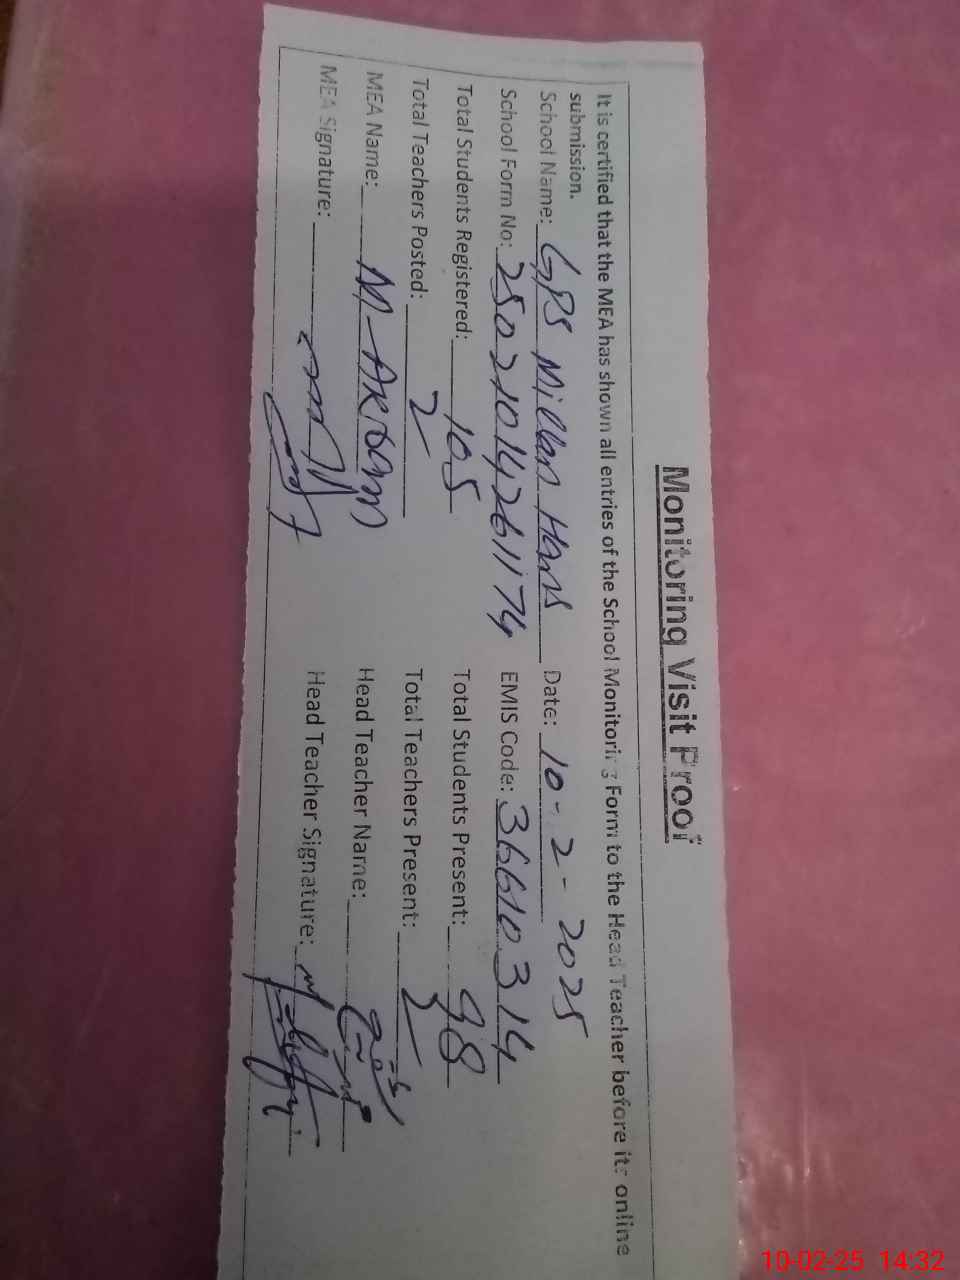 Monitoring Visit Proof
It is certified that the MEA has shown all entries of the School Monitoring Form to the Head Teacher before its online
submission.
School Name: GPS Millan Hans Date: 10-2-2025
School Form No: 250210142611174 EMIS Code: 36610314
Total Students Registered: 105 Total Students Present: 98
Total Teachers Posted: 2 Total Teachers Present: 2
MEA Name: M-Akram Head Teacher Name:
MEA Signature: Head Teacher Signature:
10-02-25 14:32